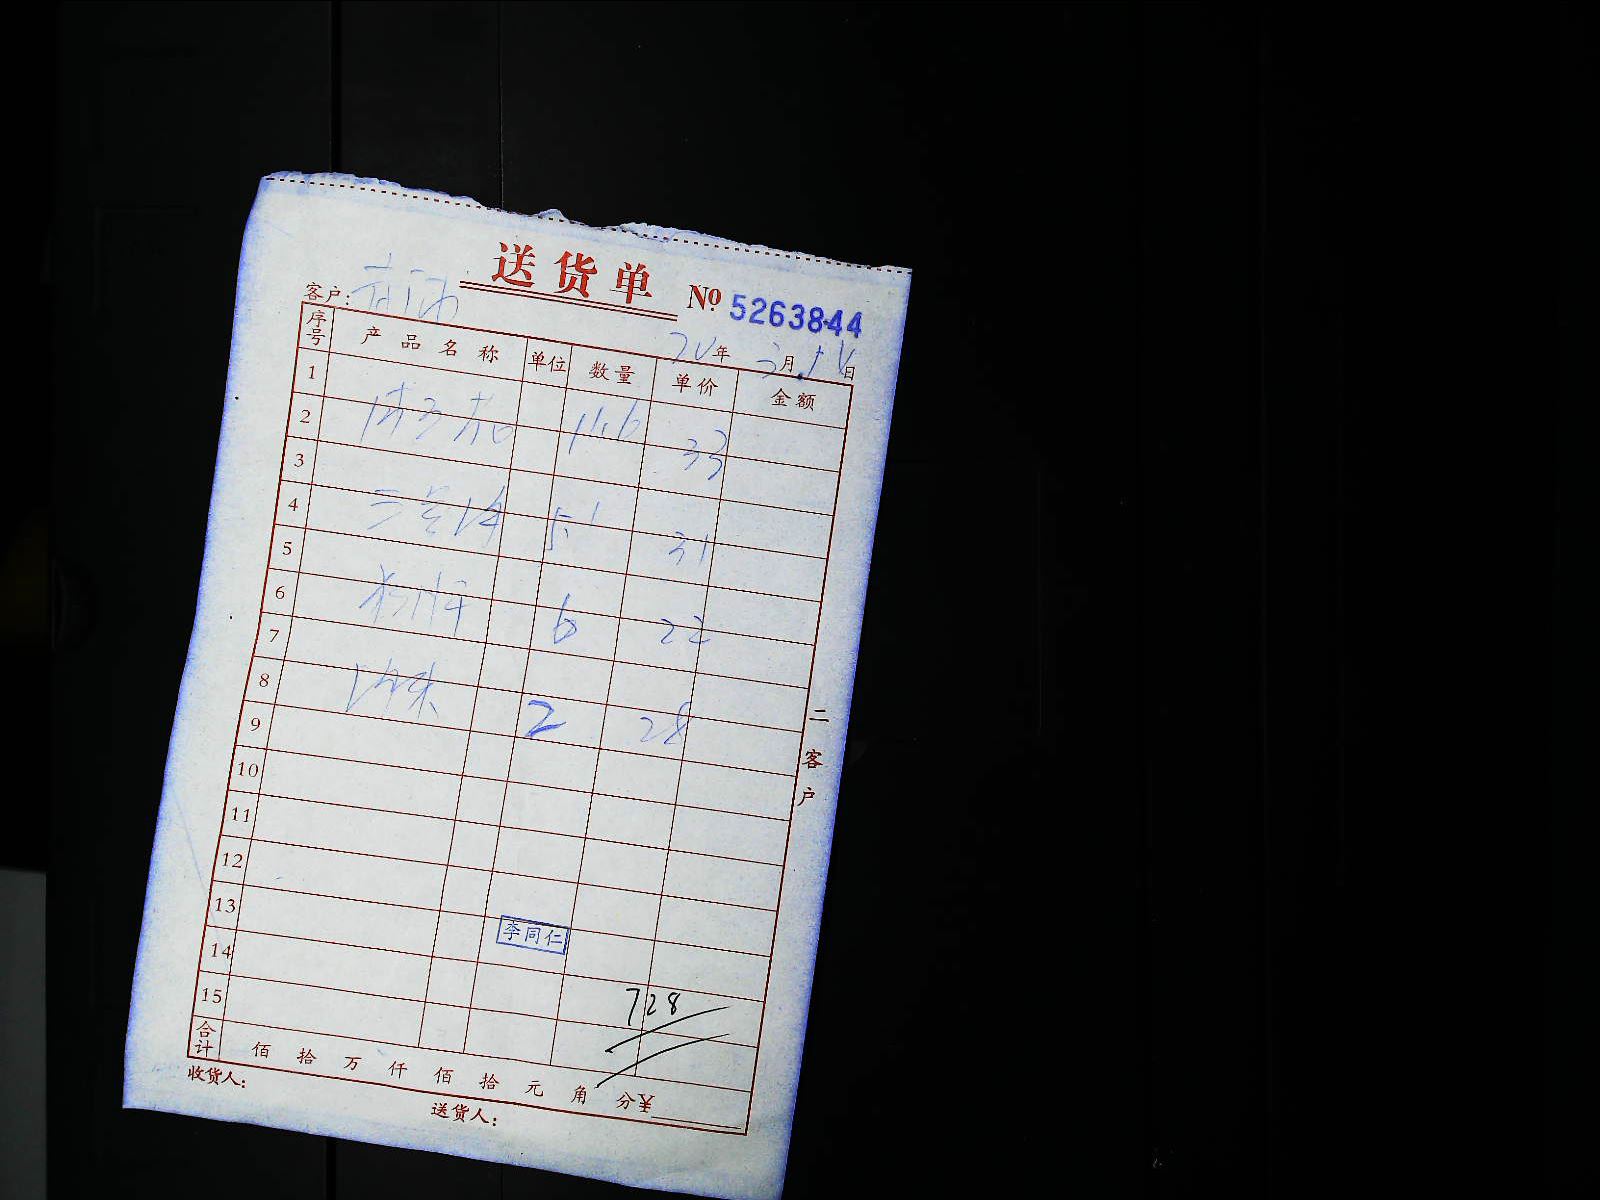 送货单 № 5263844
客户:
年 3月 日
序号 产品名称 单位 数量 单价 金额
1
2 33
3
4 5.1 31
5
6 6 22
7
8 2 28
9
10
11
12
13 李同仁
14
15 728
合计 佰 拾 万 仟 佰 拾 元 角 分¥
收货人:
送货人:
二客户